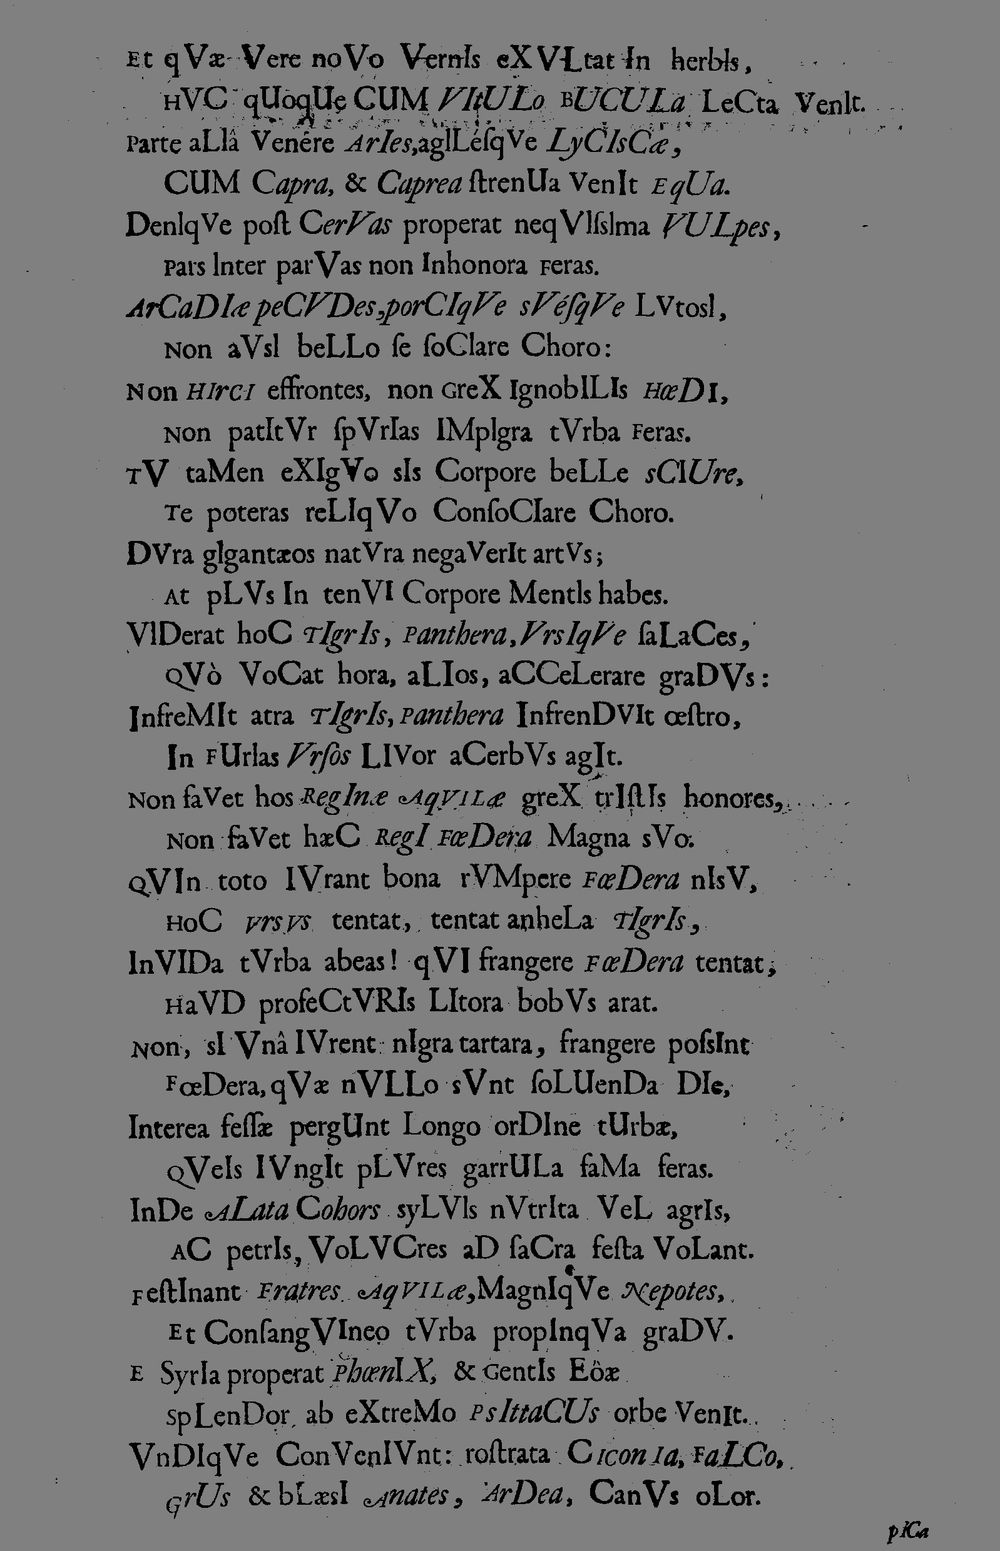 Et qVæ Vere noVo VernIs eXVLtat In herbIs,
HVC qUoqUe CUM VItULo BUCULa LeCta VenIt.
Parte aLIâ Venêre ArIes, agILésqVe LyCIsCæ,
CUM Capra, & Caprea ſtrenUa VenIt EqUa.
DenIqVe poſt CerVas properat neqVIſsIma VULpes,
Pars Inter parVas non Inhonora Feras.
ArCaDIæ peCVDes, porCIqVe sVéſqVe LVtosI,
Non aVsI beLLo ſe ſoCIare Choro:
Non HIrCI effrontes, non GreX IgnobILIs HœDI,
Non patItVr ſpVrIas IMpIgra tVrba Feras.
TV taMen eXIgVo sIs Corpore beLLe sCIUre,
Te poteras reLIqVo ConſoCIare Choro.
DVra gIgantæos natVra negaVerIt artVs;
At pLVs In tenVI Corpore MentIs habes.
VIDerat hoC TIgrIs, Panthera, VrsIqVe ſaLaCes,
QVò VoCat hora, aLIos, aCCeLerare graDVs:
InfreMIt atra TIgrIs, Panthera InfrenDVIt œſtro,
In FUrIas Vrſos LIVor aCerbVs agIt.
Non faVet hos RegInæ AqVILæ greX trIſtIs honores,
Non faVet hæC RegI FœDera Magna sVo.
QVIn toto IVrant bona rVMpere FœDera nIsV,
HoC VrsVs tentat, tentat anheLa TIgrIs,
InVIDa tVrba abeas! qVI frangere FœDera tentat,
HaVD profeCtVRIs LItora bobVs arat.
Non, sI Vnâ IVrent nIgra tartara, frangere poſsInt
FœDera, qVæ nVLLo sVnt ſoLUenDa DIe,
Interea feſſæ pergUnt Longo orDIne tUrbæ,
QVeIs IVngIt pLVres garrULa faMa feras.
InDe ALata Cohors syLVIs nVtrIta VeL agrIs,
AC petrIs, VoLVCres aD ſaCra feſta VoLant.
FeſtInant Fratres AqVILæ, MagnIqVe Nepotes,
Et ConſangVIneo tVrba propInqVa graDV.
E SyrIa properat PhœnIX, & GentIs Eôæ
SpLenDor ab eXtreMo PsIttaCUs orbe VenIt.
VnDIqVe ConVenIVnt: roſtrata CIconIa, FaLCo,
GrUs & bLæsI Anates, ArDea, CanVs oLor.
pICa